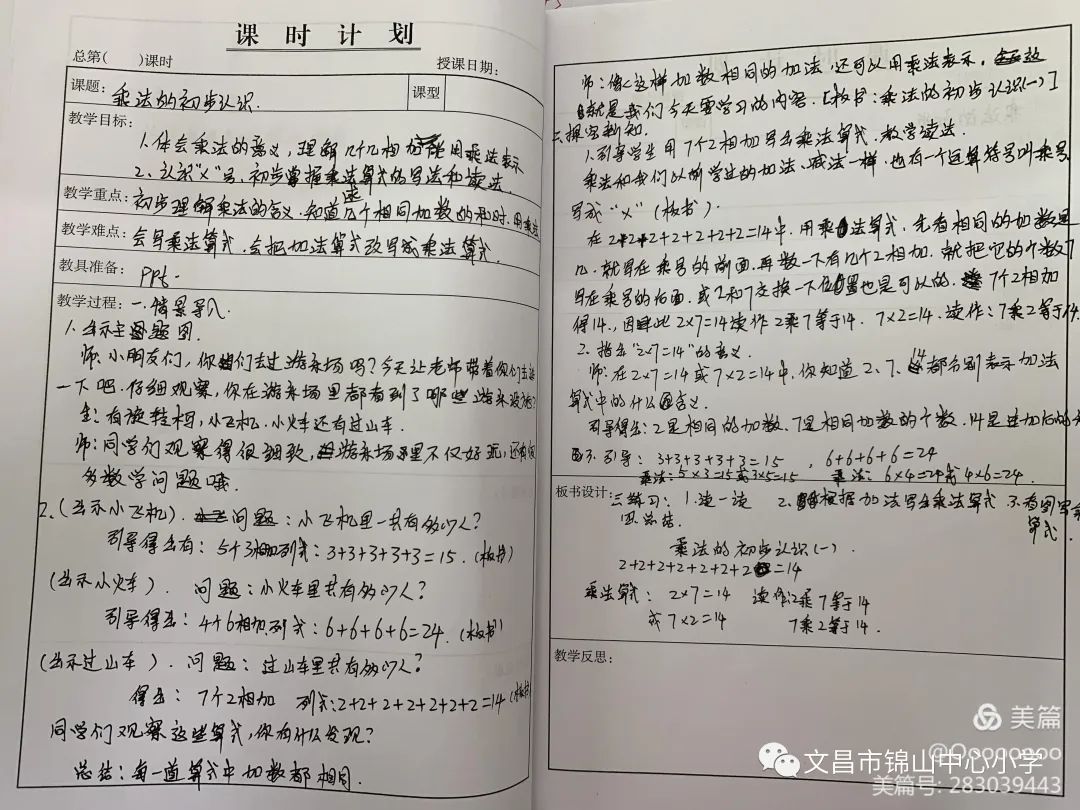 课时计划
总第( )课时 授课日期:
课题: 乘法的初步认识. 课型
教学目标:
1.体会乘法的意义,理解几个几相加能用乘法表示
2.认识“×”号,初步掌握乘法算式的写法和读法.
教学重点: 初步理解乘法的含义.知道几个相同加数的和时.用乘法
教学难点: 会写乘法算式.会把加法算式改写成乘法算式.
教具准备: PPt.
教学过程: 一.情景导入.
1.出示主题图.
师:小朋友们,你们去过游乐场吗?今天让老师带着你们去
一下吧.仔细观察,你在游乐场里都看到了哪些游乐设施?
生:有旋转椅,小飞机.小火车还有过山车.
师:同学们观察得很细致,游乐场里不仅好玩,还有很
多数学问题哦.
2.(出示小飞机).问题:小飞机里一共有多少人?
引导得出有:5个3相加列式:3+3+3+3+3=15.(板书)
(出示小火车).问题:小火车里共有多少人?
引导得出:4个6相加.列式:6+6+6+6=24.(板书)
(出示过山车).问题:过山车里共有多少人?
得出:7个2相加 列式:2+2+2+2+2+2+2=14(板书)
同学们观察这些算式,你有什么发现?
总结:每一道算式中加数都相同.
师:像这样加数相同的加法,还可以用乘法表示.这
就是我们今天要学习的内容.[板书:乘法的初步认识(一)]
二.探究新知.
1.引导学生用7个2相加写出乘法算式.教学读法.
乘法和我们以前学过的加法、减法一样,也有一个运算符号叫乘号
写成“×”(板书).
在2+2+2+2+2+2+2=14中.用乘法算式,先看相同的加数是
几.就写在乘号的前面.再数一下有几个2相加.就把它的个数7
写在乘号的后面.或2和7交换一下位置也是可以的.7个2相加
得14.,因此2×7=14读作2乘7等于14. 7×2=14.读作:7乘2等于14.
2.指出“2×7=14”的意义.
师:在2×7=14或7×2=14中,你知道2、7、14都分别表示加法
算式中的什么含义.
引导得出:2是相同的加数.7是相同加数的个数.14是连加后的
3.引导:3+3+3+3+3=15 , 6+6+6+6=24
乘法:5×3=15或3×5=15 乘法:6×4=24或4×6=24.
板书设计: 三.练习:1.读一读 2.根据加法写出乘法算式 3.看图写
四.总结. 算式.
乘法的初步认识(一).
2+2+2+2+2+2+2=14
乘法算式: 2×7=14 读作:2乘7等于14
或7×2=14 7乘2等于14.
教学反思:
美篇
@Qooooooo
文昌市锦山中心小学
美篇号: 283039443